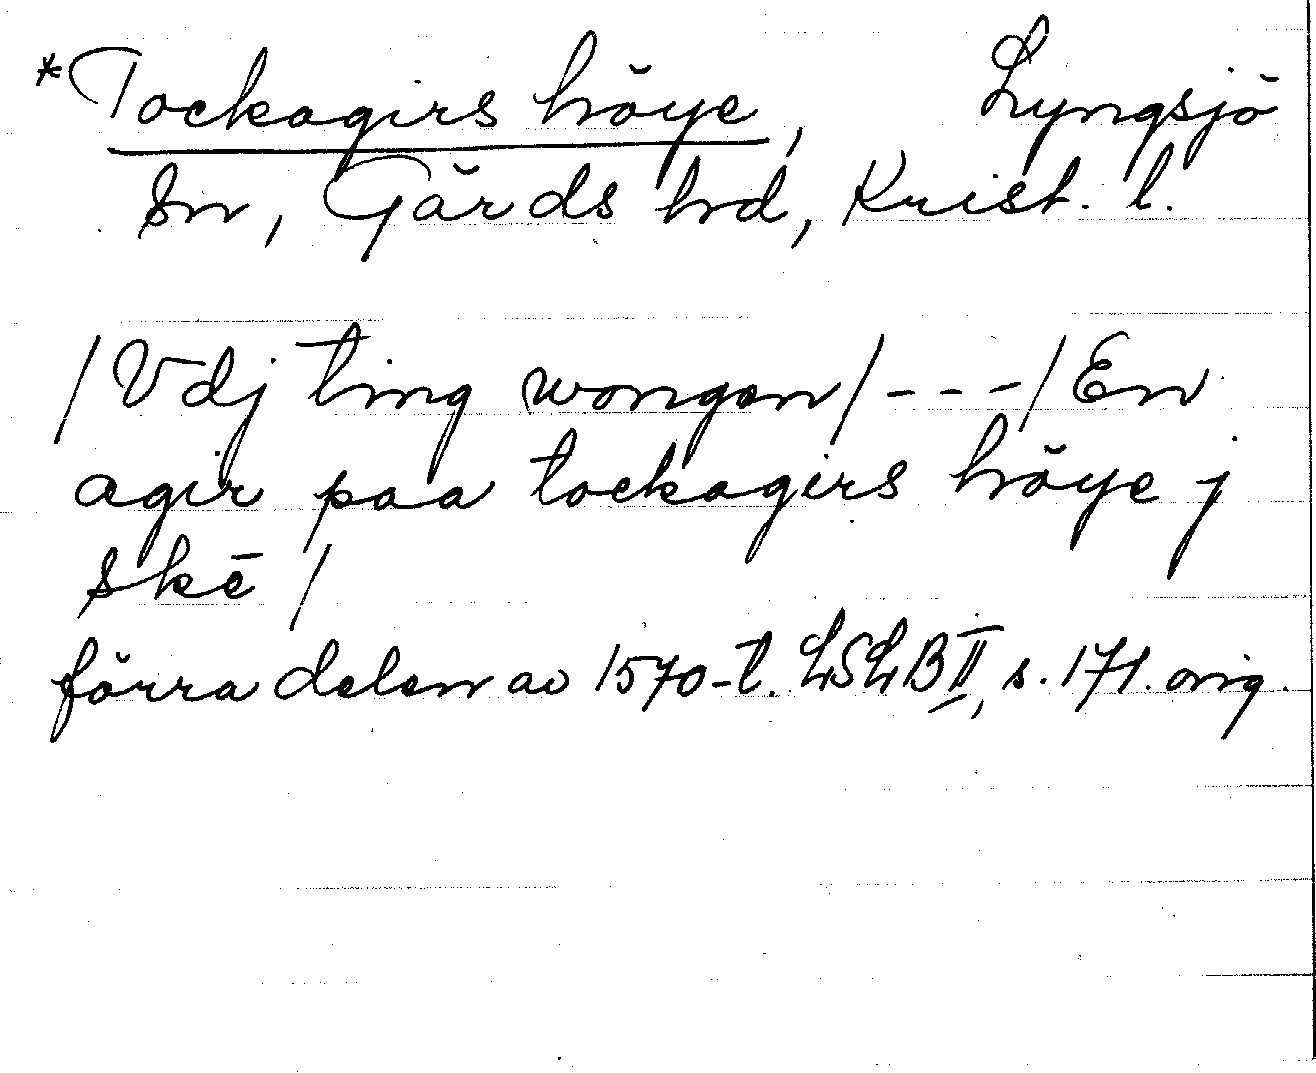 *Tockagirs höye, Lyngsjö
sn, Gärds hd, Krist. l.
/Vdj ting wongen/---/En
agir paa tockagirs höye j
skē/
förra delen av 1570-t. LSLB II, s. 171. orig.